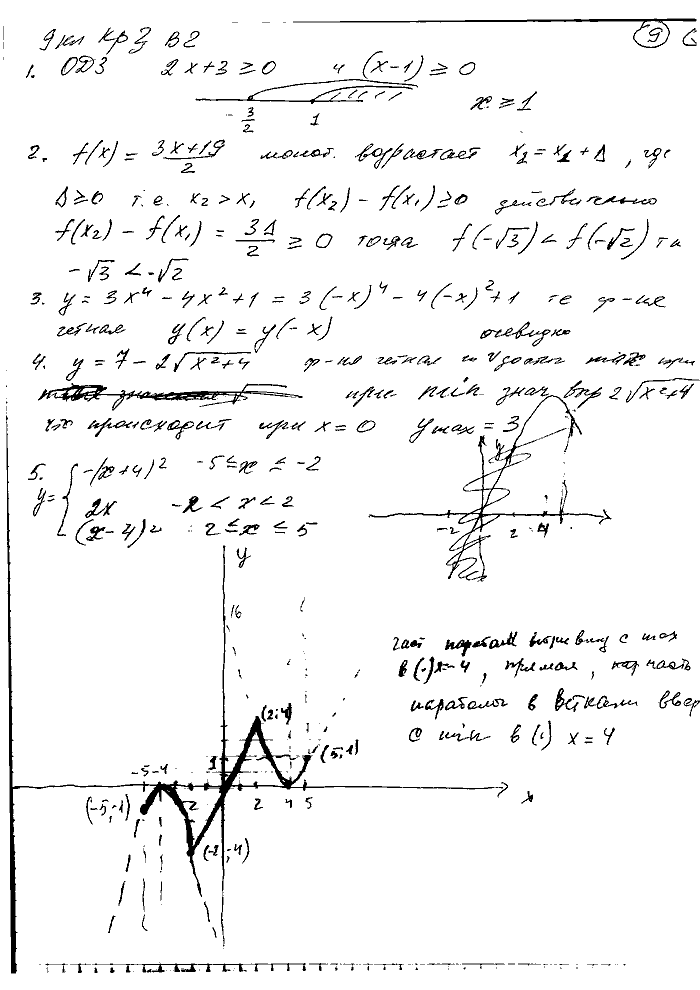 9 кл Кр 3 В2
9
1. ОДЗ 2x+3 ≥ 0 и (x-1) ≥ 0
-3/2 1 x ≥ 1
2. f(x) = (3x+19)/2 монот. возрастает x₂ = x₁ + Δ, где
Δ ≥ 0 т.е. x₂ > x₁ f(x₂) - f(x₁) ≥ 0 действительно
f(x₂) - f(x₁) = 3Δ/2 ≥ 0 тогда f(-√3) < f(-√2) тк
-√3 < -√2
3. y = 3x⁴ - 4x² + 1 = 3(-x)⁴ - 4(-x)² + 1 те ф-ия
четная y(x) = y(-x) очевидно
4. y = 7 - 2√(x²+4) ф-ия четная и при
при min знач 2√(x²+4)
что происходит при x = 0 y max = 3
5. y = { -(x+4)² -5 ≤ x ≤ -2
2x -2 < x < 2
(x-4)² 2 ≤ x ≤ 5
y
-2 2 4
y
16
част парабол с max
в (·) x=-4, прямая, часть
параболы в ветками ввер
с min в (·) x = 4
(2;4)
1 (5,1)
-5 -4
2 2 4 5 x
(-5,-1)
(-2,-4)